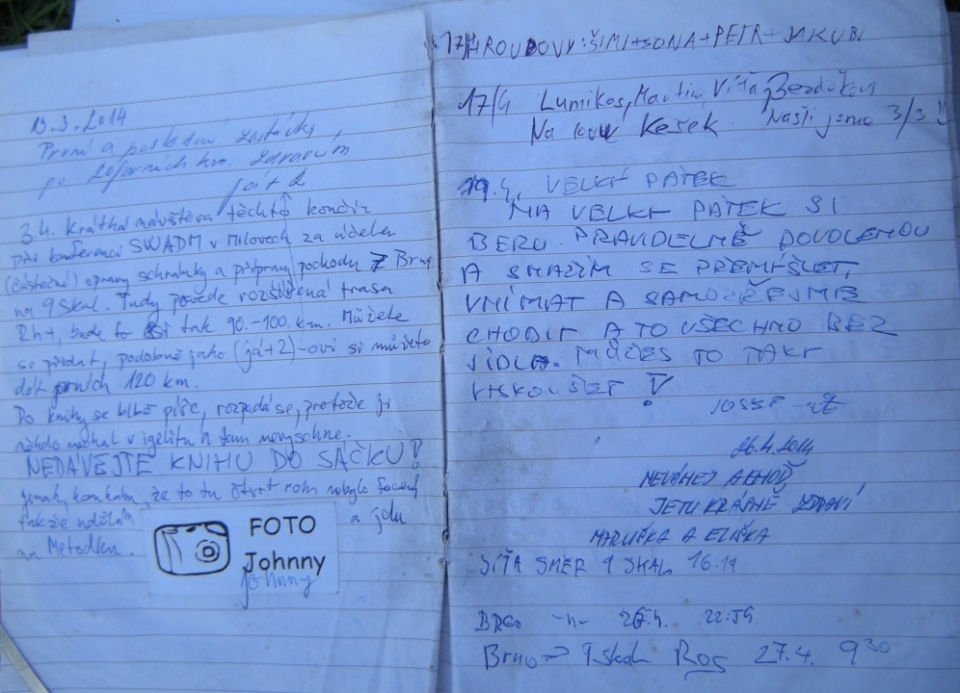 13.3.2014
První a poslední
po
já+2
3.4. Krátká návštěva těchto končin
při konferenci SWADM v Milovech za účelem
(částečné) opravy schránky a přípravy pochodu z Brna
na 9 Skal. Tudy povede rozšířená trasa
2h+, bude to asi tak 90.-100. km. Můžete
se přidat, podobně jako (já+2)-ovi si můžete
dát prvních 120 km.
Do knihy se blbě píše, rozpadá se, protože ji
někdo nechal v igelitu a tam nevyschne.
NEDÁVEJTE KNIHU DO SÁČKU!
Jinak koukám, že to tu čtvrt roku nebylo focený
takže udělám a jdu
na Metodku.
FOTO
Johnny
Johnny
17/4 HROUDOVY: ŠIMI+SOŇA+PETR+JAKUB
17/4 Lumikos, Martin, Víťa Bezděkovi
Na lovu Kešek. Našli jsme 3/3
19.4. VELKÝ PÁTEK
NA VELKÝ PÁTEK SI
BERU PRAVIDELNĚ DOVOLENOU
A SNAŽÍM SE PŘEMÝŠLET,
VNÍMAT A SAMOZŘEJMĚ
CHODIT A TO VŠECHNO BEZ
JÍDLA. MŮŽEŠ TO TAKY
VYSKOUŠET!
JOSEF
26.4.2014
NEVÁHEJ A CHOĎ
JE TU KRÁSNĚ ZDRAVÍ
MARUŠKA A ELIŠKA
SÍŤA SMĚR 9 SKAL 16:19
-||- 26.4. 22:59
Brno → 9 Skal Ros 27.4. 9 30